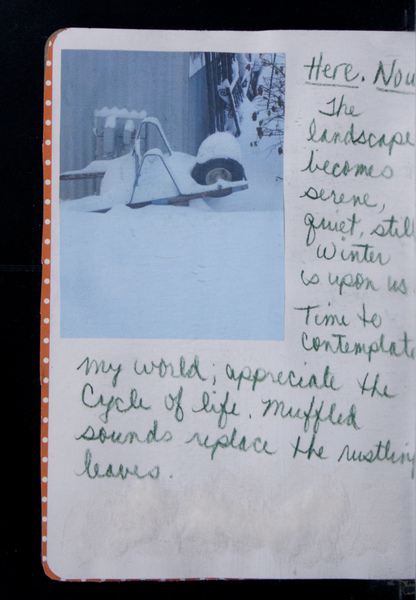 Here. Now
The
landscape
becomes
serene,
quiet, still
Winter
is upon us
Time to
contemplate
my world; appreciate the
cycle of life. Muffled
sounds replace the rustling
leaves.